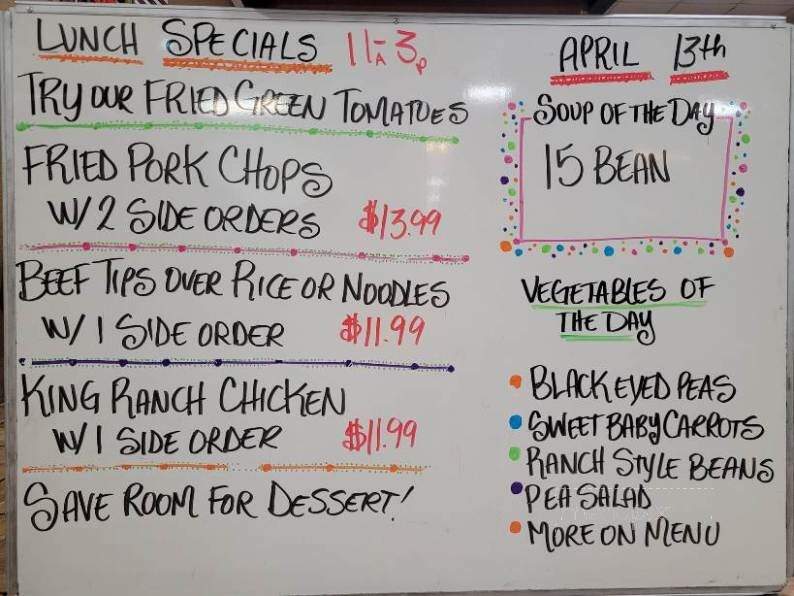 LUNCH SPECIALS 11A-3P
TRY OUR FRIED GREEN TOMATOES
FRIED PORK CHOPS
W/2 SIDE ORDERS $13.99
BEEF TIPS OVER RICE OR NOODLES
W/1 SIDE ORDER $11.99
KING RANCH CHICKEN
W/1 SIDE ORDER $11.99
SAVE ROOM FOR DESSERT!
APRIL 13th
SOUP OF THE DAY
15 BEAN
VEGETABLES OF
THE DAY
• BLACK EYED PEAS
• SWEET BABY CARROTS
• RANCH STYLE BEANS
• PEA SALAD
• MORE ON MENU